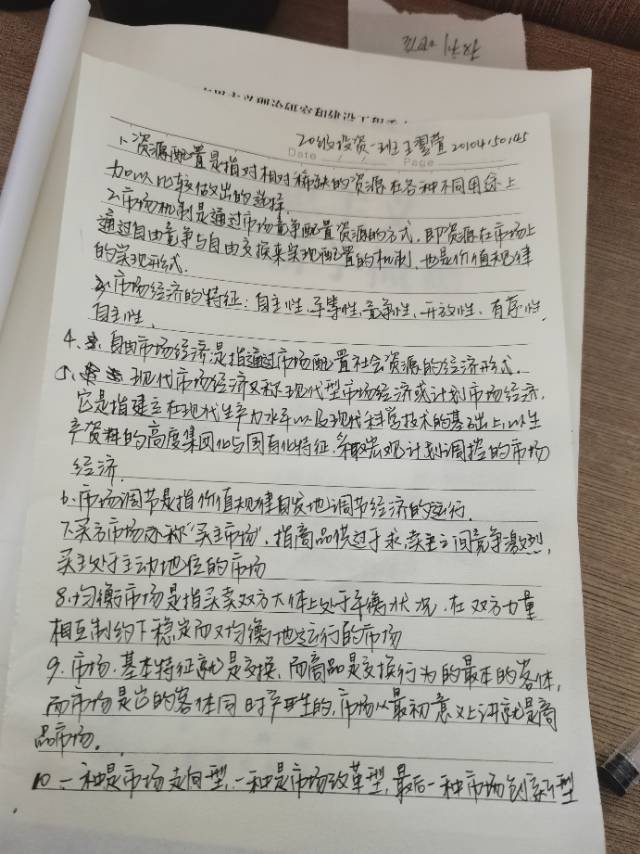 20级投资一班王墨萱 2010415045
Date / / Page
1、资源配置是指对相对稀缺的资源在各种不同用途上
加以比较做出的选择.
2.市场机制是通过市场竞争配置资源的方式,即资源在市场上
通过自由竞争与自由交换来实现配置的机制,也是价值规律
的实现形式.
3、市场经济的特征:自主性、平等性、竞争性、开放性、有序性.
自主性.
4. 自由市场经济是指通过市场配置社会资源的经济形式.
5、现代市场经济又称现代型市场经济或计划市场经济.
它是指建立在现代生产力水平以及现代科学技术的基础上,以生
产资料的高度集团化与国有化特征,采取宏观计划调控的市场
经济.
6.市场调节是指价值规律自发地调节经济的运行.
7.买方市场亦称"买主市场",指商品供过于求,卖主之间竞争激烈,
买主处于主动地位的市场
8.均衡市场是指买卖双方大体上处于平衡状况,在双方力量
相互制约下稳定而又均衡地运行的市场
9.市场.基本特征就是交换,而商品是交换行为的最本的客体,
而市场是的客体同时产生的,市场从最初意义上讲就是商
品市场.
10 一种是市场走向型,一种是市场改革型,最后一种市场创新型